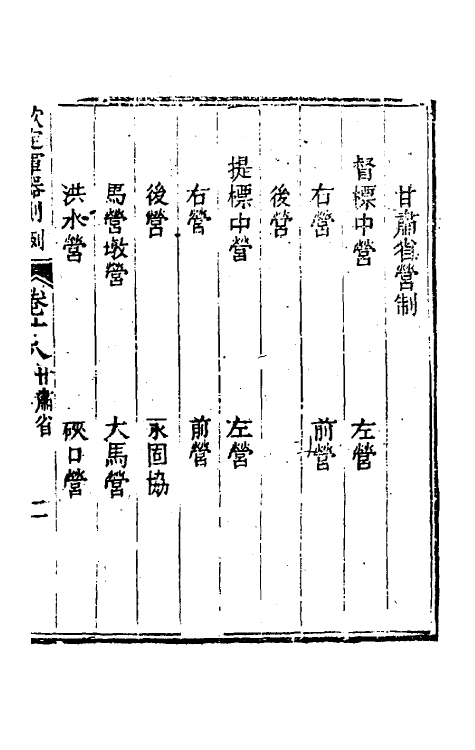 甘肅省營制
督標中營　左營
右營　前營
後營
提標中營　左營
右營　前營
後營　永固協
馬營墩營　大馬營
洪水營　硤口營
欽定軍器則例　卷十八　甘肅省　二